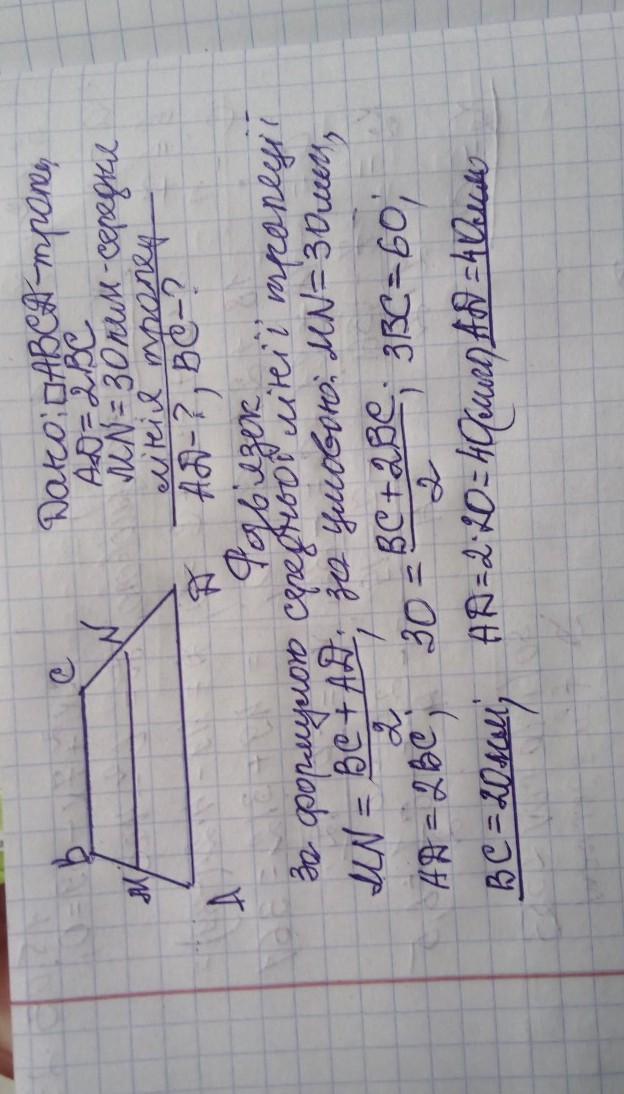 B C
M N
A D
Дано: □ABCD-трапец,
AD=2BC
MN=30мм-середня
лінія трапец
AD-?, BC-?
Розв'язок
За формулою середньої лінії трапеції
MN = BC + AD / 2; за умовою: MN=30мм,
AD=2BC; 30 = BC+2BC / 2; 3BC=60;
BC=20мм; AD=2·20=40(мм), AD=40мм